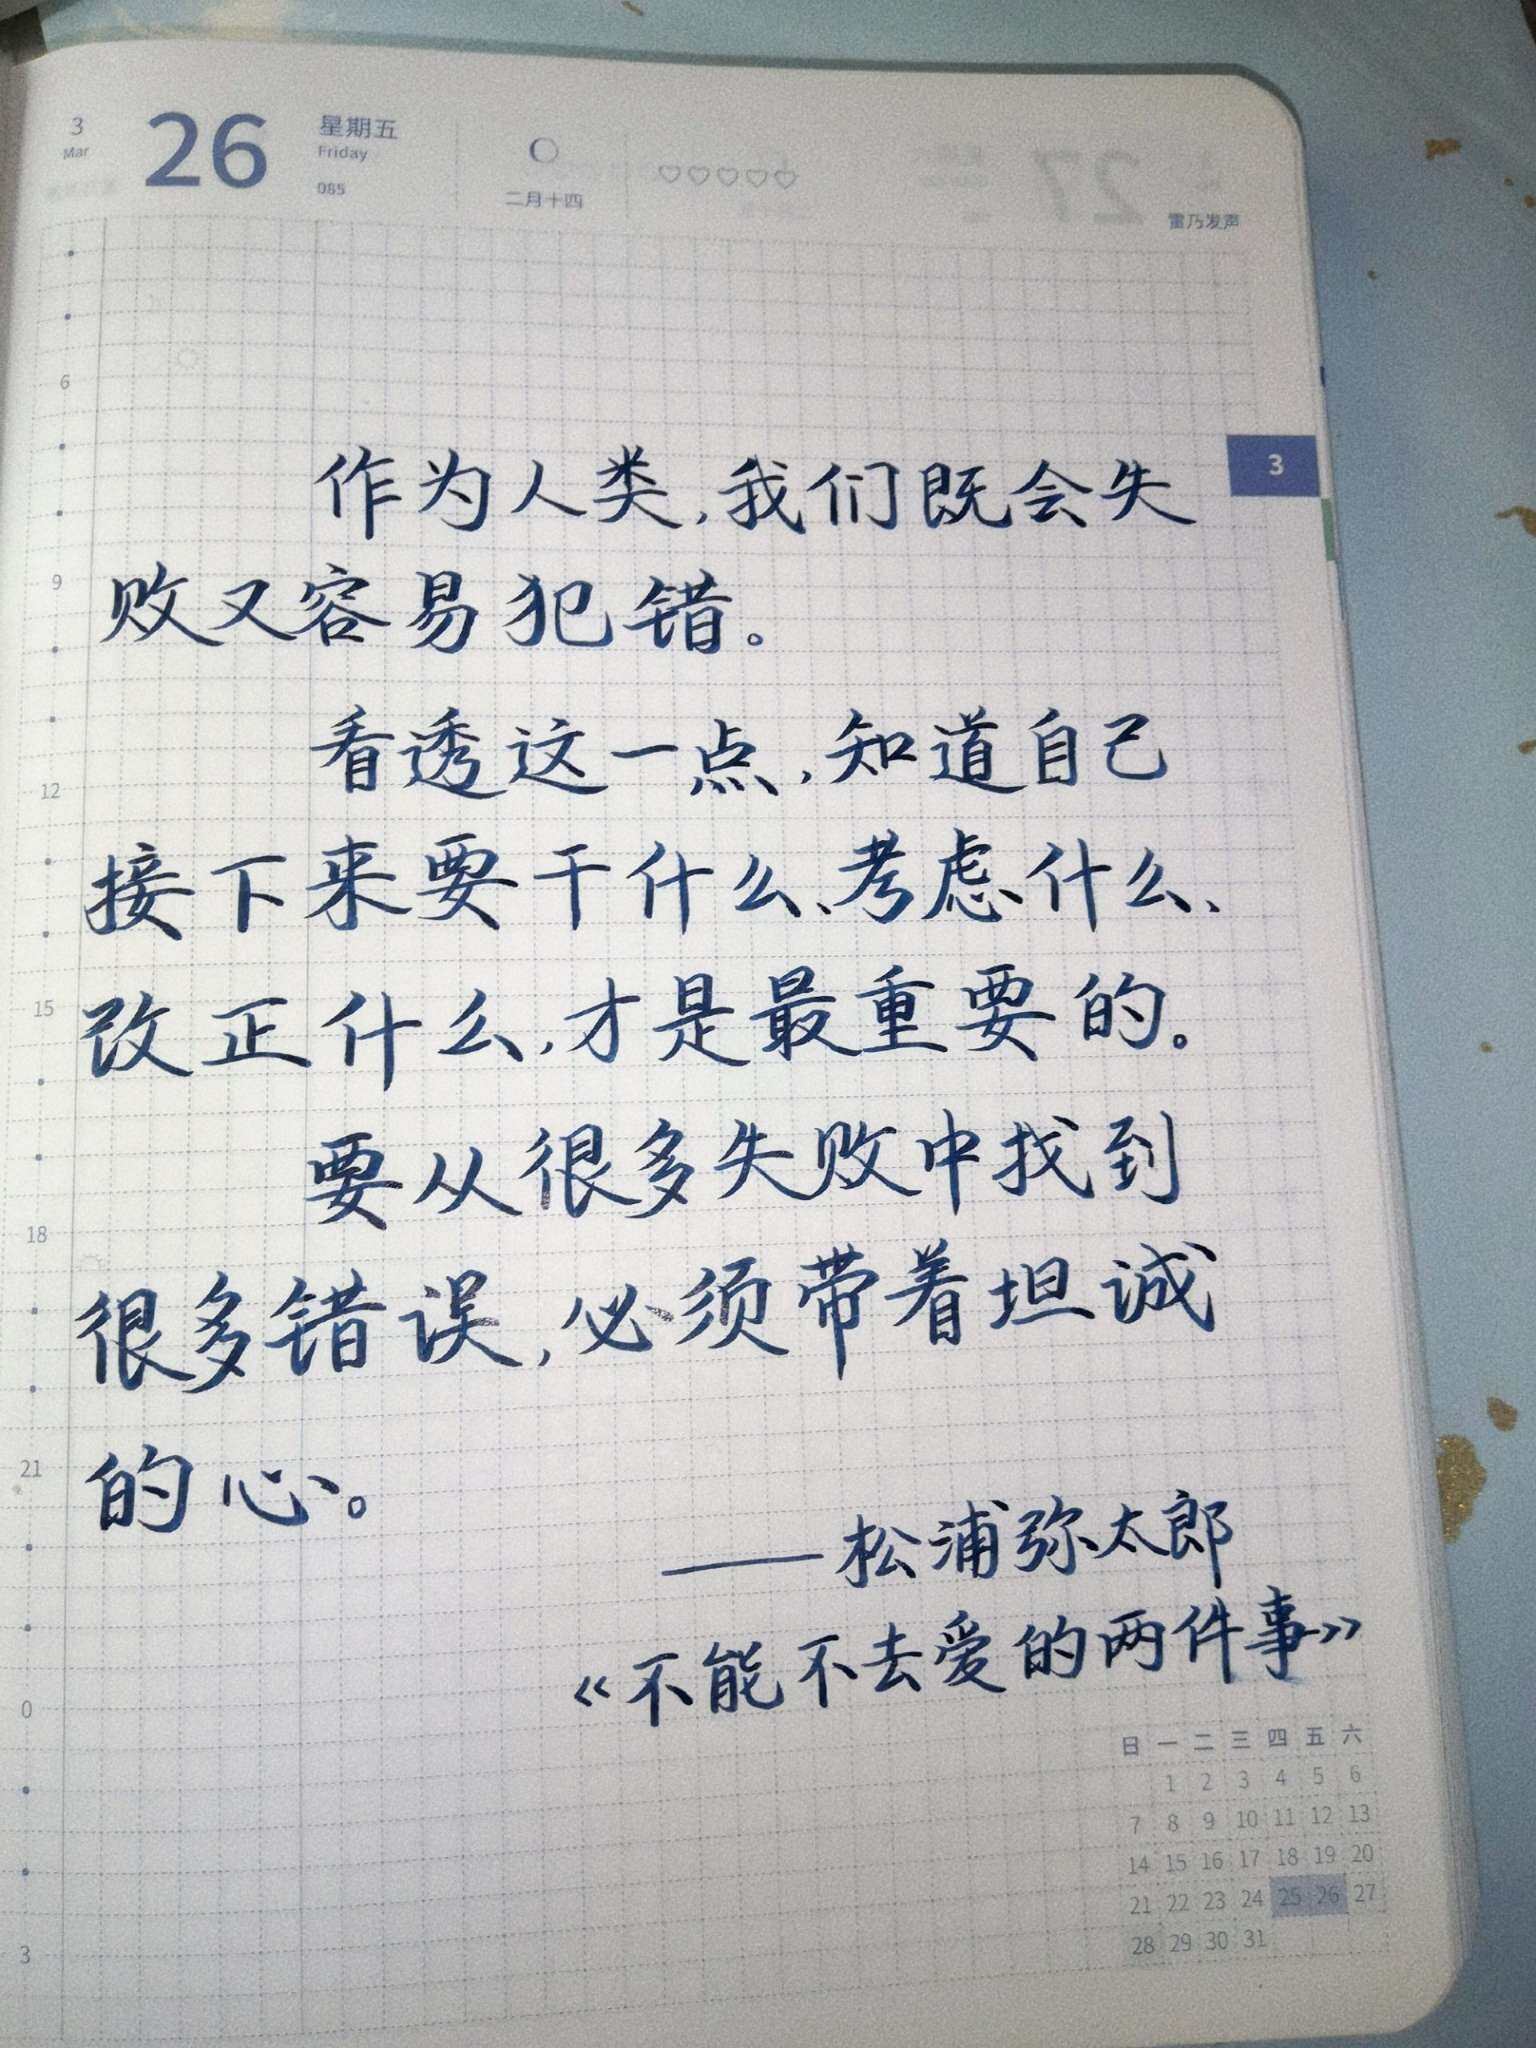 3
Mar
26
星期五
Friday
085
二月十四
雷乃发声
3
作为人类，我们既会失
败又容易犯错。
看透这一点，知道自己
接下来要干什么、考虑什么、
改正什么，才是最重要的。
要从很多失败中找到
很多错误，必须带着坦诚
的心。
——松浦弥太郎
《不能不去爱的两件事》
6
9
12
15
18
21
0
3
日 一 二 三 四 五 六
1 2 3 4 5 6
7 8 9 10 11 12 13
14 15 16 17 18 19 20
21 22 23 24 25 26 27
28 29 30 31